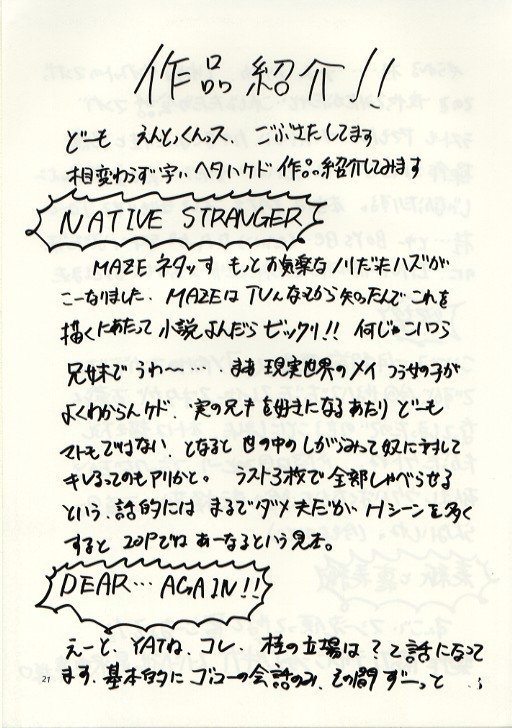 作品紹介!!
どーも えんどくんッス、ごぶさたしてます
相変わらず字ぃヘタいケド作品紹介してみます
NATIVE STRANGER
MAZEネタッす もっとお気楽なノリだたハズが
こーなりました. MAZEはTVんなてから知ったんでこれを
描くにあたって小説よんだらビックリ!! 何じゃこいつら
兄妹でうわ〜…. まぁ現実世界のメイつう女の子が
よくわからんケド、実の兄ィを好きになるあたりどーも
マトモではない、となると世の中のしがらみって奴に対して
キレるってのもアリかと。 ラスト3枚で全部しゃべらせる
という、話的にはまるでダメ夫だが、Hシーンを多く
すると 20Pでは あーなるという見本。
DEAR… AGAIN!!
えーと、YATね、コレ、 桂の立場は?って話になって
ます、基本的にゴローの会話のみ、その間ずーっと
21